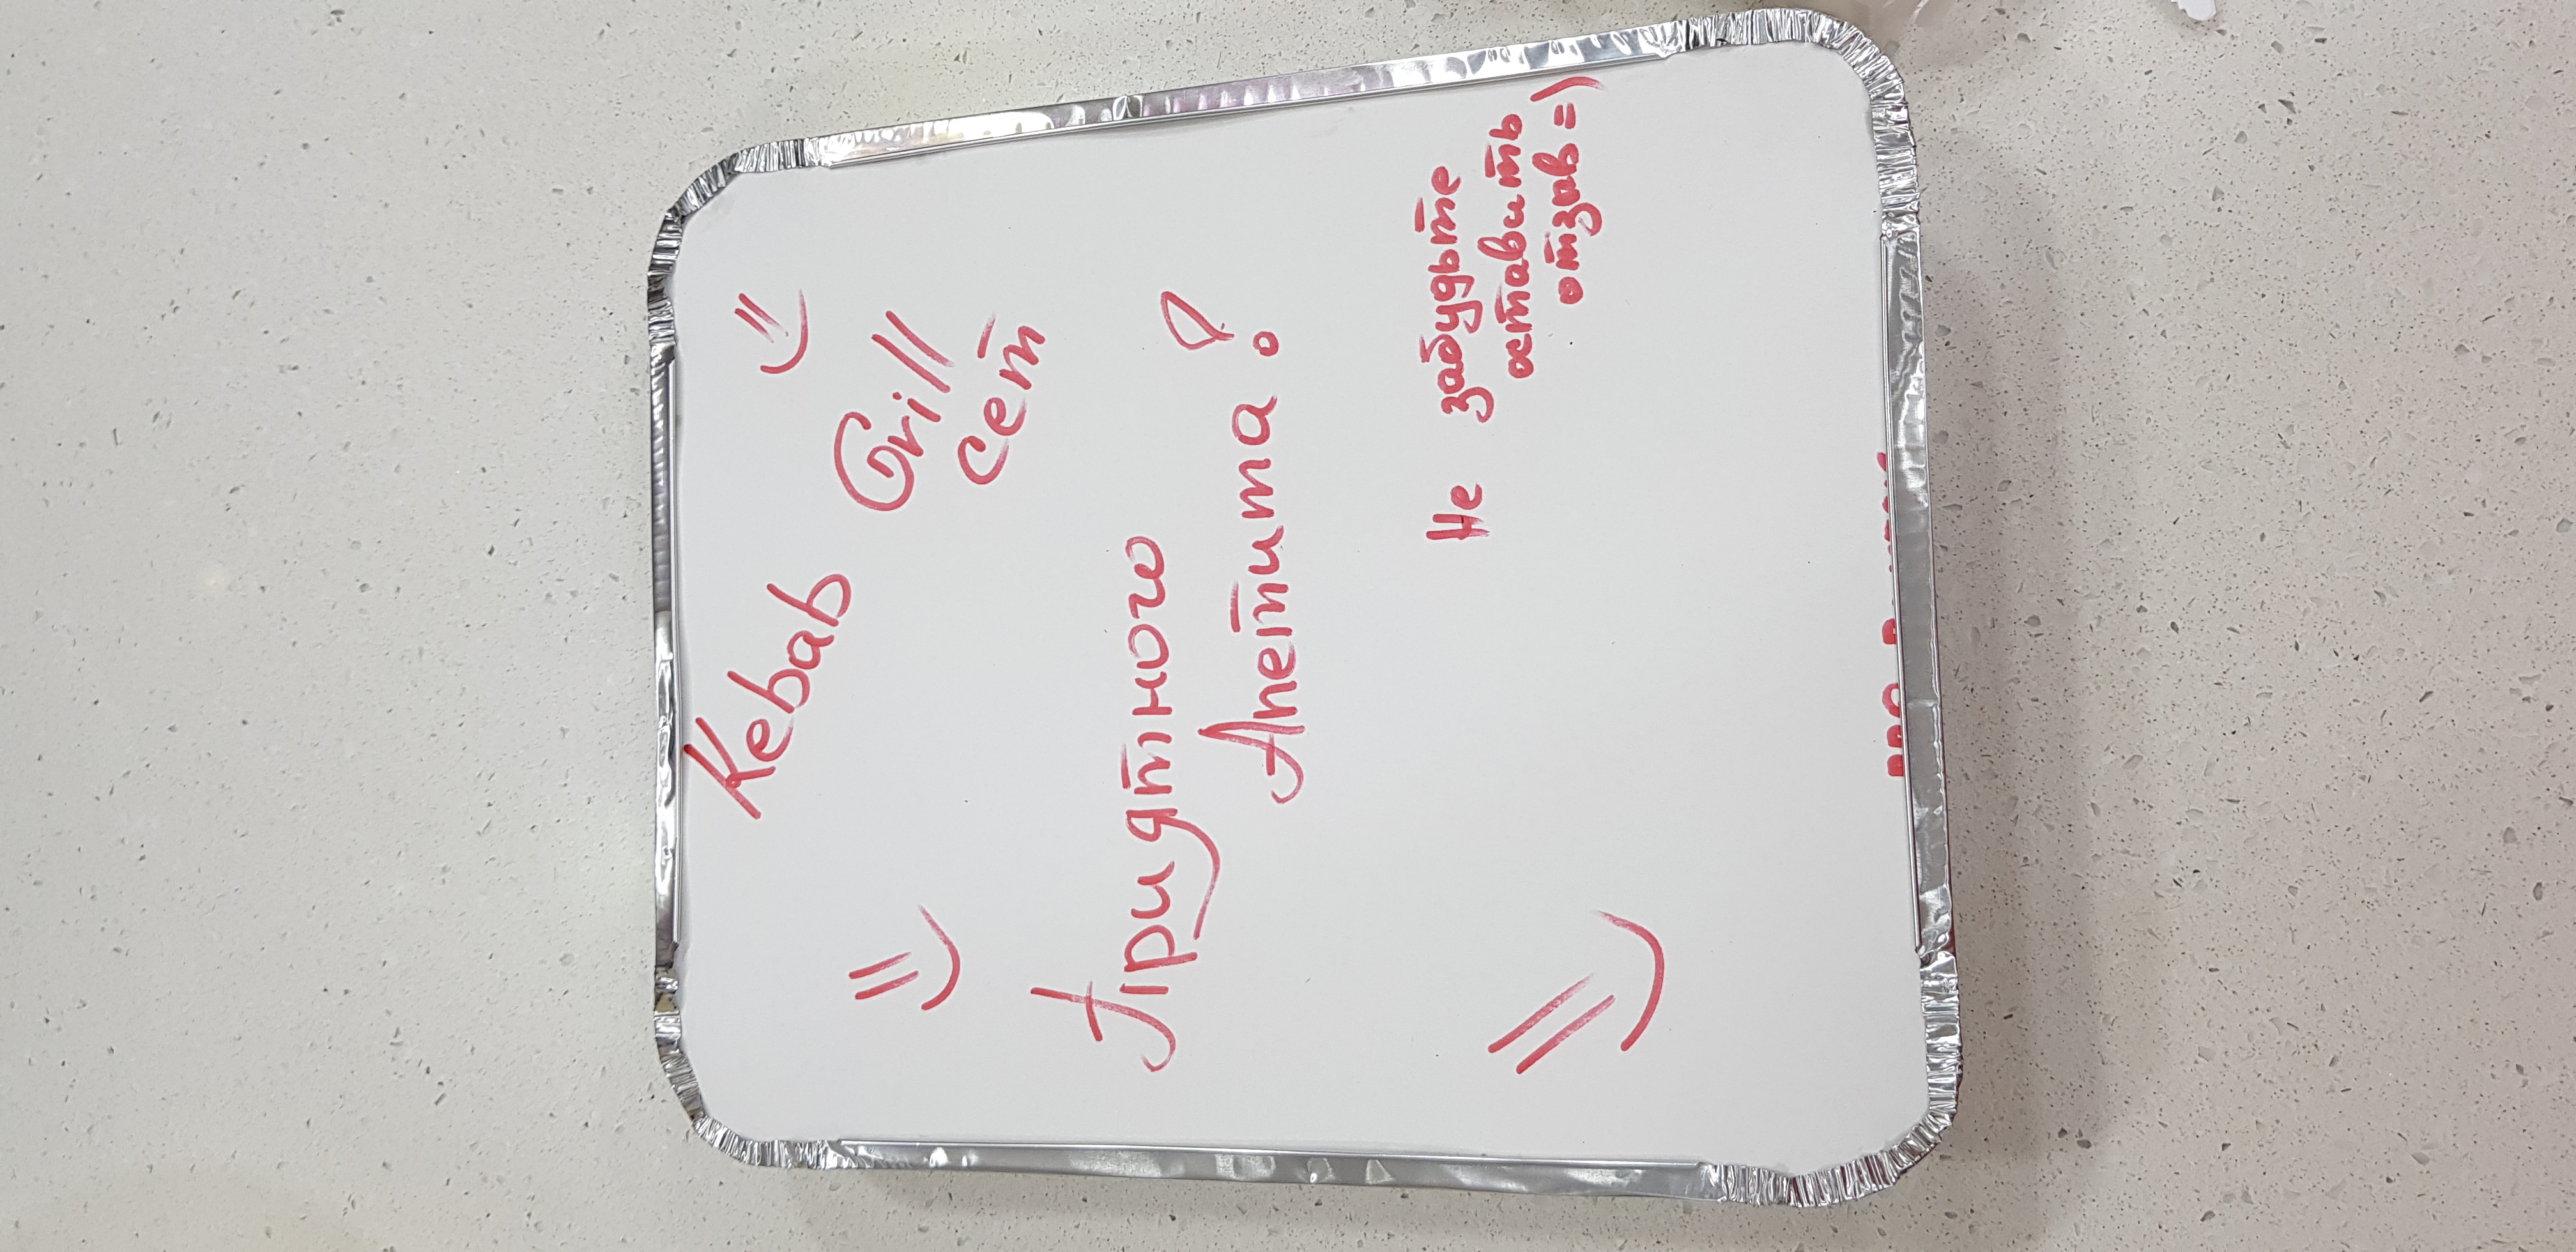 Kebab Grill =)
сет
=)
Приятного
Апетита!
Не забудьте
оставить
отзыв =)
=)